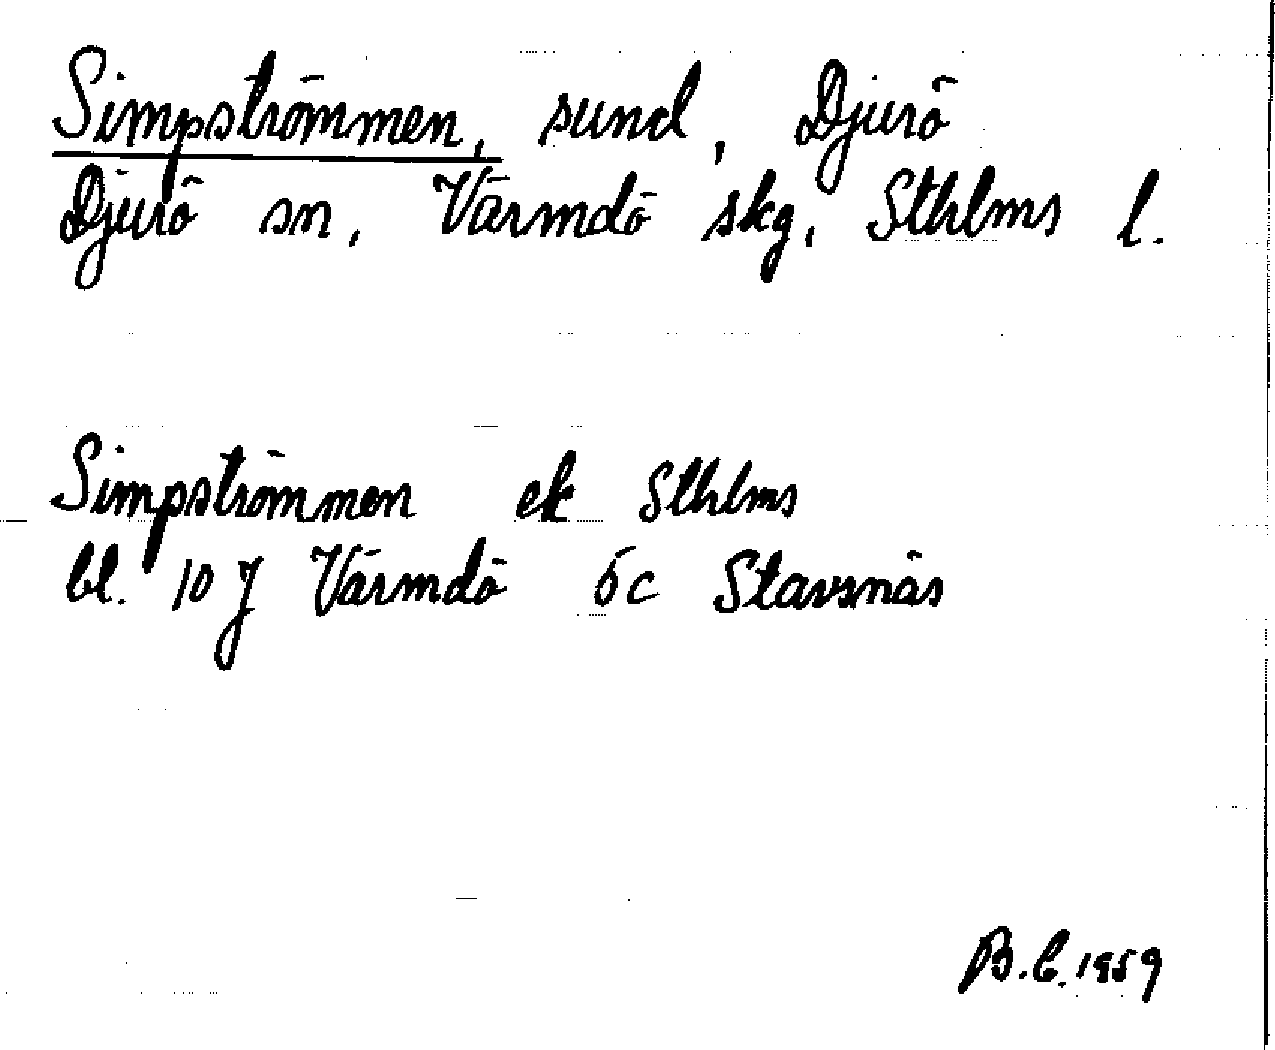 Simpströmmen, sund, Djurö
Djurö sn, Värmdö skg, Sthlms l.
Simpströmmen ek Sthlms
bl. 10 J Värmdö 5c Stavsnäs
B.C. 1959